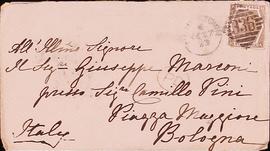 All' Illmo Signore
Il Sigr Giuseppe Marconi
presso Sigr Camillo Pini
Piazza Maggiore
Bologna
Italy